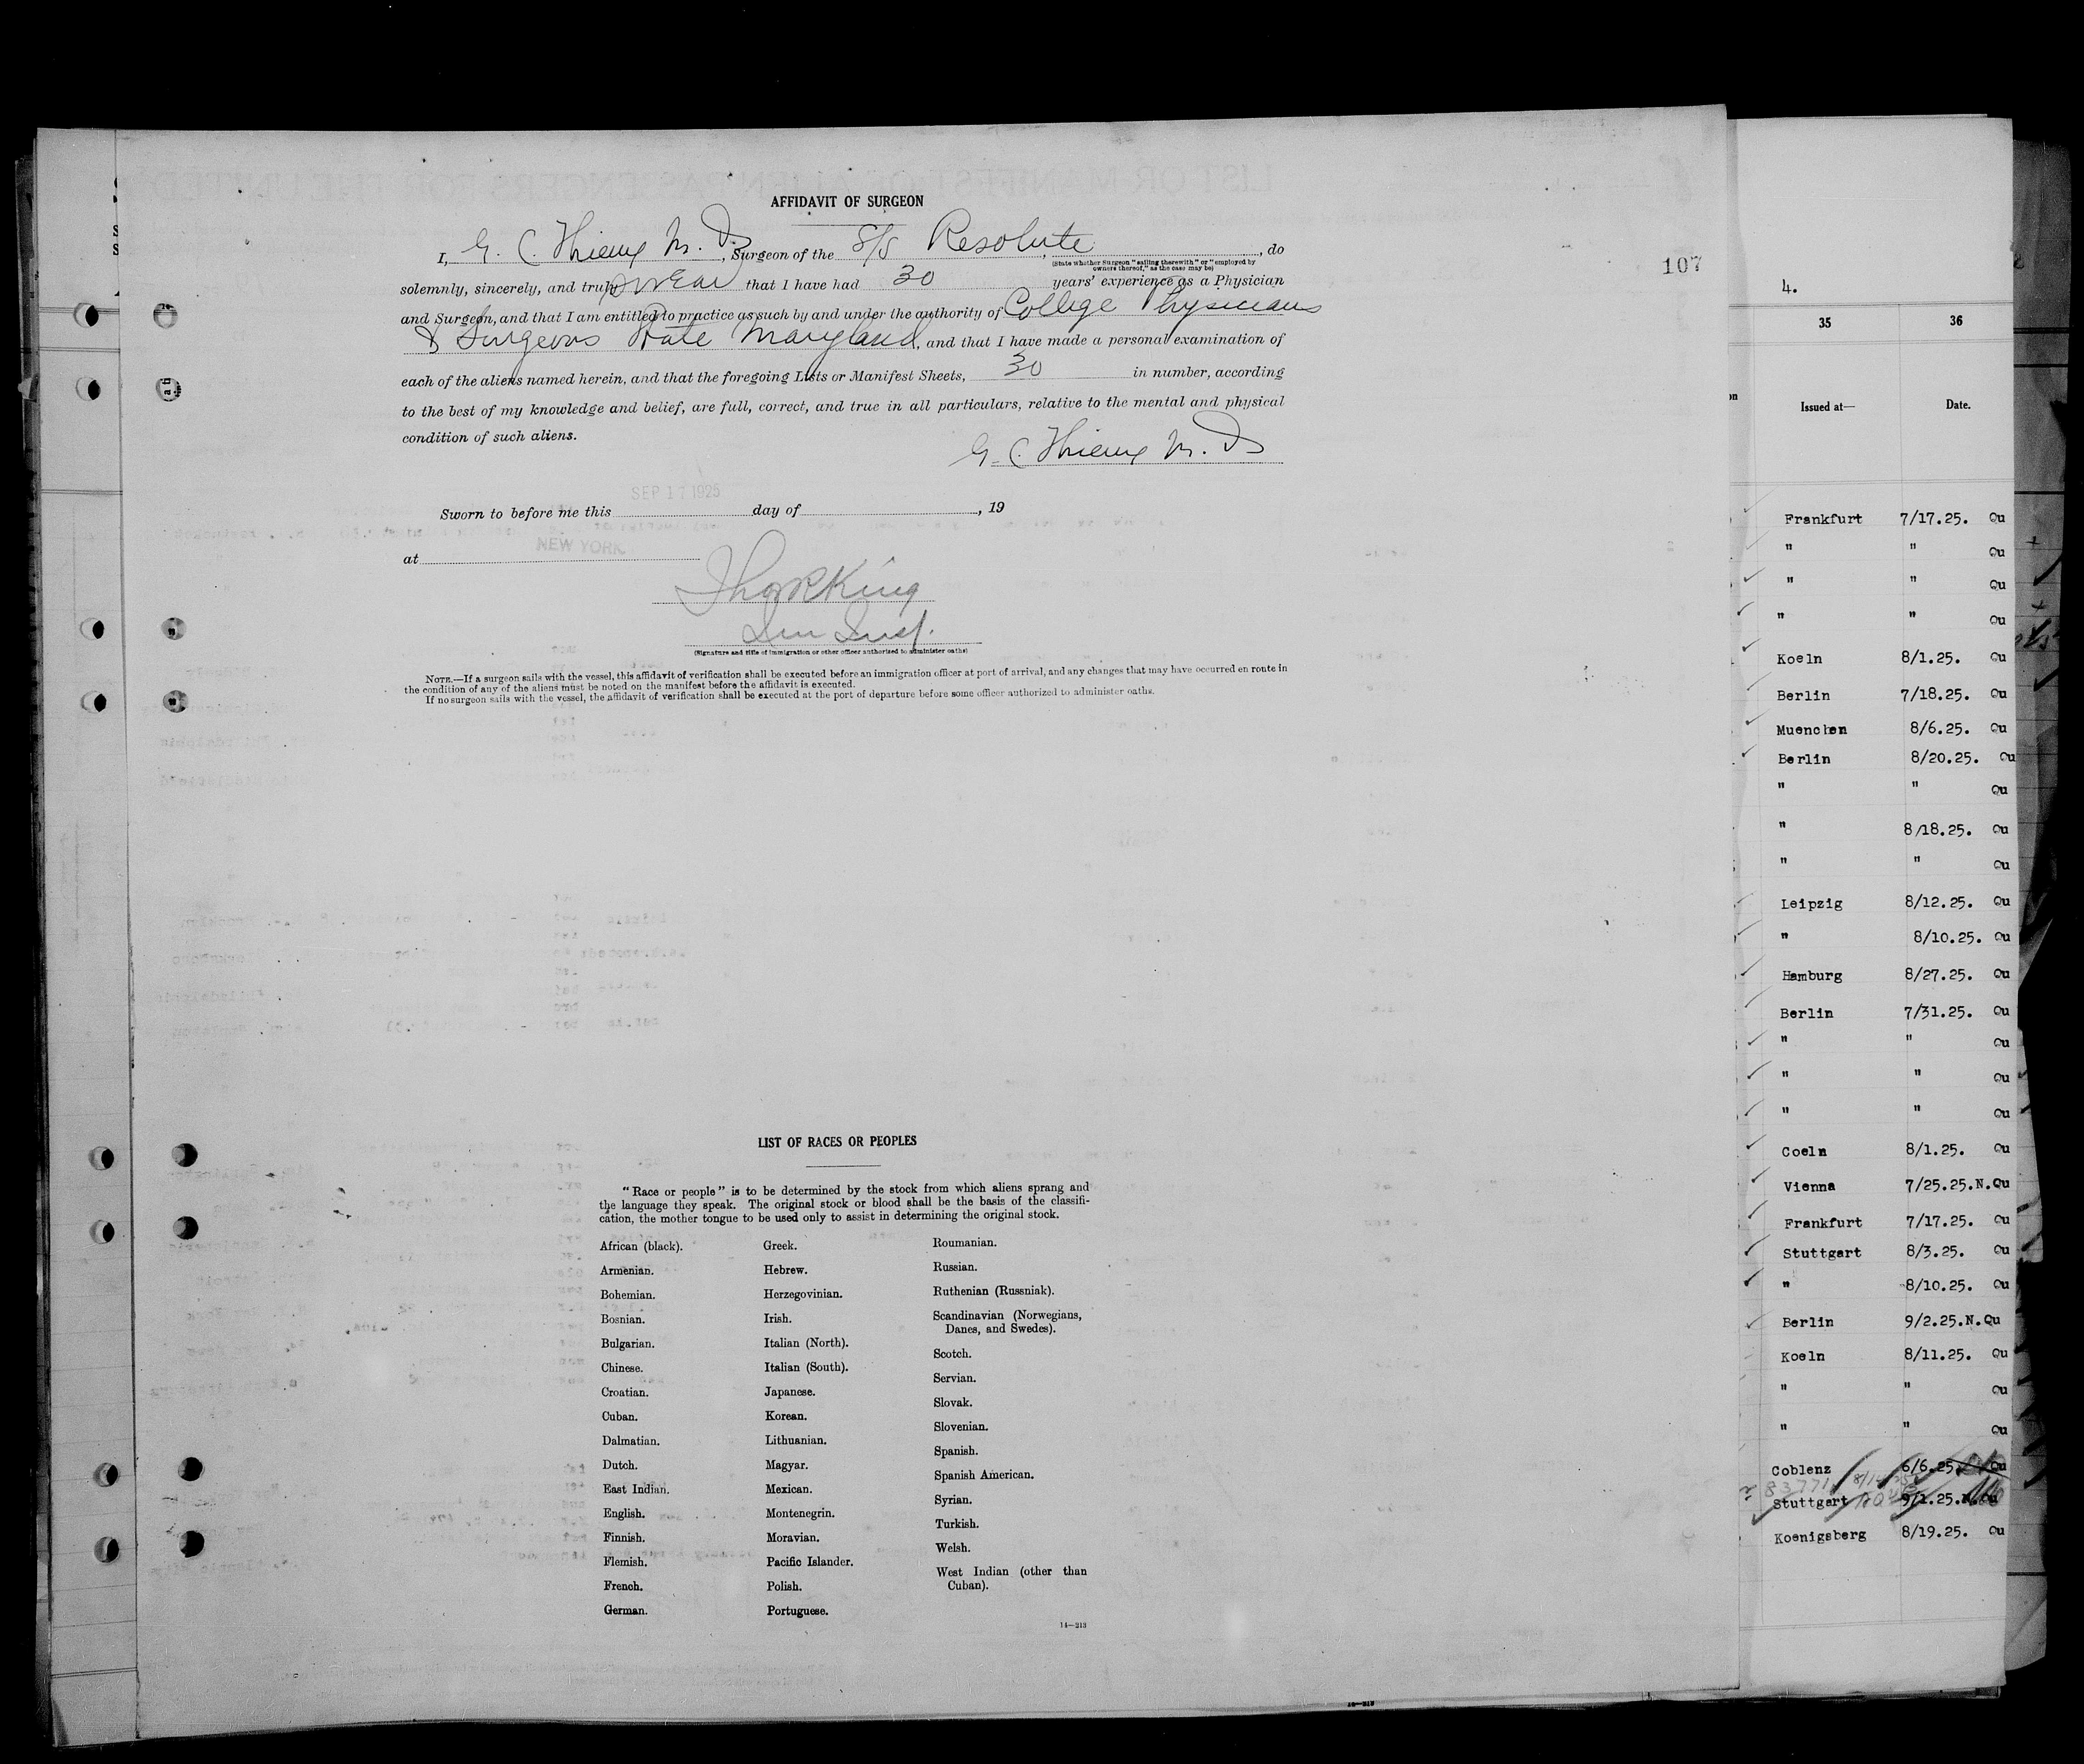 AFFIDAVIT OF SURGEON
I, G. C. M. D., Surgeon of the S/S Resolute, (State whether Surgeon "sailing therewith" or "employed by owners thereof," as the case may be), do
107
solemnly, sincerely, and truly swear that I have had 30 years' experience as a Physician
and Surgeon, and that I am entitled to practice as such by and under the authority of College Physicians
& Surgeons State Maryland, and that I have made a personal examination of
each of the aliens named herein, and that the foregoing Lists or Manifest Sheets, 30 in number, according
to the best of my knowledge and belief, are full, correct, and true in all particulars, relative to the mental and physical
condition of such aliens.
G. C. M. D
SEP 17 1925
Sworn to before me this day of , 19
NEW YORK
at
King
(Signature and title of immigration or other officer authorized to administer oaths)
NOTE.—If a surgeon sails with the vessel, this affidavit of verification shall be executed before an immigration officer at port of arrival, and any changes that may have occurred en route in
the condition of any of the aliens must be noted on the manifest before the affidavit is executed.
If no surgeon sails with the vessel, the affidavit of verification shall be executed at the port of departure before some officer authorized to administer oaths.
LIST OF RACES OR PEOPLES
"Race or people" is to be determined by the stock from which aliens sprang and
the language they speak. The original stock or blood shall be the basis of the classifi-
cation, the mother tongue to be used only to assist in determining the original stock.
African (black).
Armenian.
Bohemian.
Bosnian.
Bulgarian.
Chinese.
Croatian.
Cuban.
Dalmatian.
Dutch.
East Indian.
English.
Finnish.
Flemish.
French.
German.
Greek.
Hebrew.
Herzegovinian.
Irish.
Italian (North).
Italian (South).
Japanese.
Korean.
Lithuanian.
Magyar.
Mexican.
Montenegrin.
Moravian.
Pacific Islander.
Polish.
Portuguese.
Roumanian.
Russian.
Ruthenian (Russniak).
Scandinavian (Norwegians,
Danes, and Swedes).
Scotch.
Servian.
Slovak.
Slovenian.
Spanish.
Spanish American.
Syrian.
Turkish.
Welsh.
West Indian (other than
Cuban).
14—213
4.
35 36
Issued at— Date.
Frankfurt 7/17.25. Qu
" " Qu
" " Qu
" " Qu
Koeln 8/1.25. Qu
Berlin 7/18.25. Qu
Muenchen 8/6.25. Qu
Berlin 8/20.25. Qu
" " Qu
" 8/18.25. Qu
" " Qu
Leipzig 8/12.25. Qu
" 8/10.25. Qu
Hamburg 8/27.25. Qu
Berlin 7/31.25. Qu
" " Qu
" " Qu
" " Qu
Coeln 8/1.25. Qu
Vienna 7/25.25.N.Qu
Frankfurt 7/17.25. Qu
Stuttgart 8/3.25. Qu
" 8/10.25. Qu
Berlin 9/2.25.N.Qu
Koeln 8/11.25. Qu
" " Qu
" " Qu
Coblenz 6/6.25. Qu
Stuttgart 9/1.25.N.Qu
Koenigsberg 8/19.25. Qu